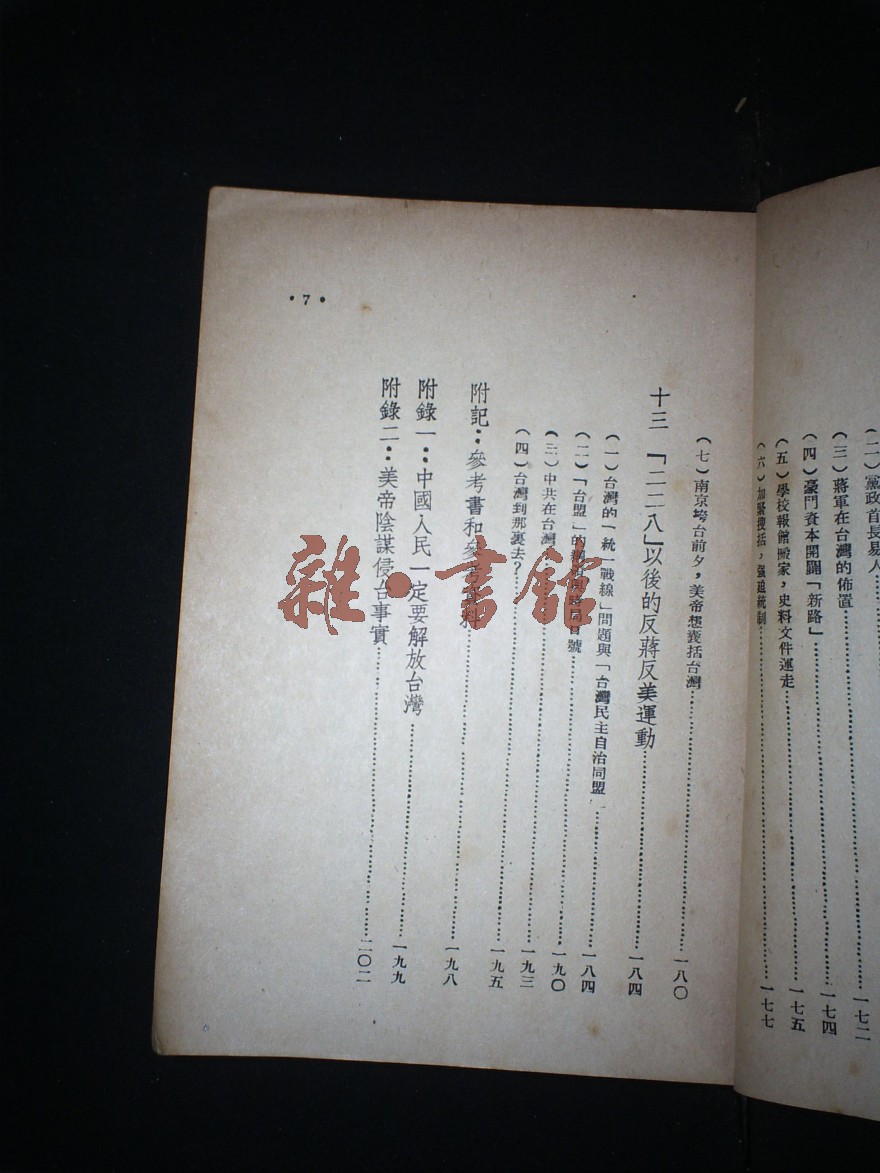 (二)黨政首長易人……一七二
(三)蔣軍在台灣的佈置
(四)豪門資本開闢「新路」……一七四
(五)學校報館搬家，史料文件運走……一七五
(六)加緊搜括，強迫統制……一七七
(七)南京垮台前夕，美帝想囊括台灣……一八〇
十三 「二二八」以後的反蔣反美運動……一八四
(一)台灣的「統一戰線」問題與「台灣民主自治同盟……一八四
(二)「台盟」的綱領與時局口號……一九〇
(三)中共在台灣……一九三
(四)台灣到那裏去？……一九五
附記：參考書和參考資料……一九八
附錄一：中國人民一定要解放台灣……一九九
附錄二：美帝陰謀侵台事實……二〇二
•7•
雜•書館